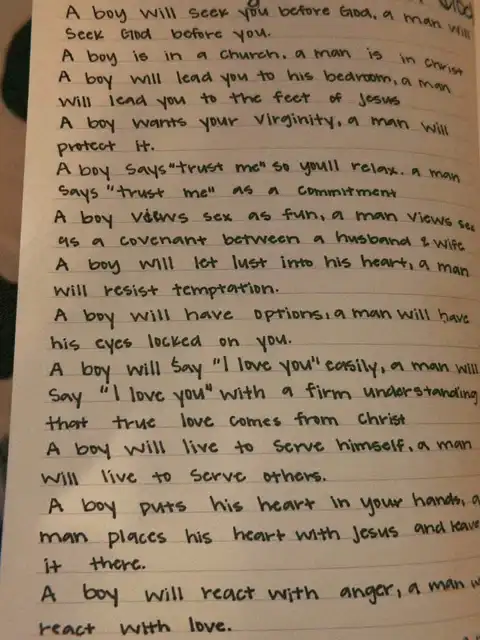 A boy will seek you before God, a man will
seek God before you.
A boy is in a church, a man is in Christ
A boy will lead you to his bedroom, a man
will lead you to the feet of Jesus
A boy wants your virginity, a man will
protect it.
A boy says "trust me" so youll relax. a man
says "trust me" as a commitment
A boy views sex as fun, a man views sex
as a covenant between a husband & wife
A boy will let lust into his heart, a man
will resist temptation.
A boy will have options, a man will have
his eyes locked on you.
A boy will say "I love you" easily, a man will
say "I love you" with a firm understanding
that true love comes from Christ
A boy will live to serve himself, a man
will live to serve others.
A boy puts his heart in your hands, a
man places his heart with Jesus and leave
it there.
A boy will react with anger, a man w
react with love.